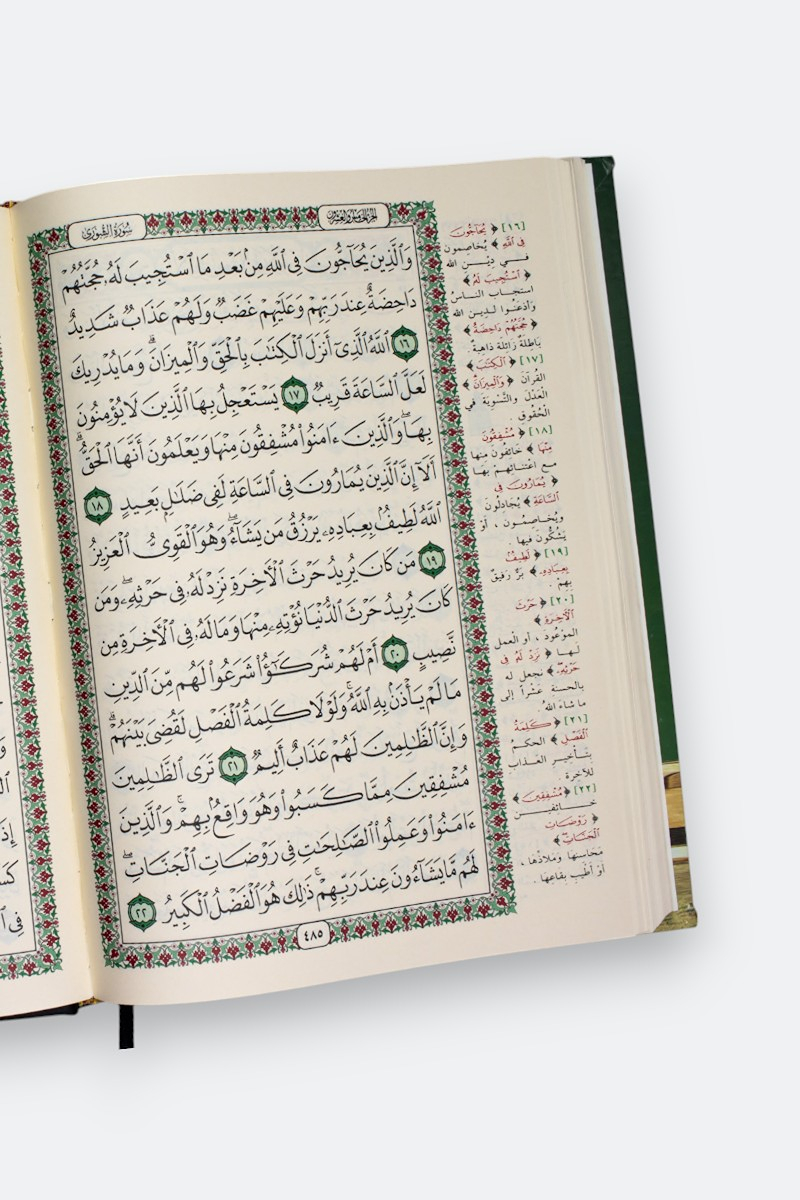 الجزء الخامس والعشرون
سورة الشورى
وَالَّذِينَ يُحَاجُّونَ فِي ٱللَّهِ مِنۢ بَعْدِ مَا ٱسْتُجِيبَ لَهُۥ حُجَّتُهُمْ
دَاحِضَةٌ عِندَ رَبِّهِمْ وَعَلَيْهِمْ غَضَبٌ وَلَهُمْ عَذَابٌ شَدِيدٌ
١٦ ٱللَّهُ ٱلَّذِىٓ أَنزَلَ ٱلْكِتَٰبَ بِٱلْحَقِّ وَٱلْمِيزَانَ ۗ وَمَا يُدْرِيكَ
لَعَلَّ ٱلسَّاعَةَ قَرِيبٌ ١٧ يَسْتَعْجِلُ بِهَا ٱلَّذِينَ لَا يُؤْمِنُونَ
بِهَا ۖ وَٱلَّذِينَ ءَامَنُوا۟ مُشْفِقُونَ مِنْهَا وَيَعْلَمُونَ أَنَّهَا ٱلْحَقُّ ۗ
أَلَآ إِنَّ ٱلَّذِينَ يُمَارُونَ فِى ٱلسَّاعَةِ لَفِى ضَلَٰلٍۭ بَعِيدٍ ١٨
ٱللَّهُ لَطِيفٌۢ بِعِبَادِهِۦ يَرْزُقُ مَن يَشَآءُ ۖ وَهُوَ ٱلْقَوِىُّ ٱلْعَزِيزُ
١٩ مَن كَانَ يُرِيدُ حَرْثَ ٱلْأَخِرَةِ نَزِدْ لَهُۥ فِى حَرْثِهِۦ ۖ وَمَن
كَانَ يُرِيدُ حَرْثَ ٱلدُّنْيَا نُؤْتِهِۦ مِنْهَا وَمَا لَهُۥ فِى ٱلْأَخِرَةِ مِن
نَّصِيبٍ ٢٠ أَمْ لَهُمْ شُرَكَٰٓؤُا۟ شَرَعُوا۟ لَهُم مِّنَ ٱلدِّينِ
مَا لَمْ يَأْذَنۢ بِهِ ٱللَّهُ ۚ وَلَوْلَا كَلِمَةُ ٱلْفَصْلِ لَقُضِىَ بَيْنَهُمْ ۗ
وَإِنَّ ٱلظَّٰلِمِينَ لَهُمْ عَذَابٌ أَلِيمٌ ٢١ تَرَى ٱلظَّٰلِمِينَ
مُشْفِقِينَ مِمَّا كَسَبُوا۟ وَهُوَ وَاقِعٌۢ بِهِمْ ۗ وَٱلَّذِينَ
ءَامَنُوا۟ وَعَمِلُوا۟ ٱلصَّٰلِحَٰتِ فِى رَوْضَاتِ ٱلْجَنَّاتِ ۖ
لَهُم مَّا يَشَآءُونَ عِندَ رَبِّهِمْ ۚ ذَٰلِكَ هُوَ ٱلْفَضْلُ ٱلْكَبِيرُ ٢٢
٤٨٥
[١٦] ﴿ يُحَاجُّونَ
فِي ٱللَّهِ ﴾ يُخَاصِمون
فـي دِيـنِ الله
﴿ ٱسْتُجِيبَ لَهُ ﴾
استجاب الناسُ
وأذعَنُوا لدِينِ الله
﴿ حُجَّتُهُمْ دَاحِضَةٌ ﴾
بَاطِلَةٌ زَائِلَةٌ ذاهِبةٌ .
[١٧] ﴿ ٱلْكِتَٰبَ ﴾
القُرآنَ ﴿ وَٱلْمِيزَانَ ﴾
العَدْلَ والتَّسْوِيَةَ في
الحُقُوقِ
[١٨] ﴿ مُشْفِقُونَ
مِنْهَا ﴾ خَائِفُونَ منها
مـع اعتنائِهـم بها
﴿ يُمَارُونَ فِى
ٱلسَّاعَةِ ﴾ يُجادِلُونَ
ويُخاصِمُون ، أَوْ
يَشُكُّونَ فيها .
[١٩] ﴿ لَطِيفٌۢ
بِعِبَادِهِۦ ﴾ بَرٌّ رَفِيقٌ
بِهِمْ .
[٢٠] ﴿ حَرْثَ
ٱلْأَخِرَةِ ﴾
الموْعُودَ ، أو العمل
لَـهـا ﴿ نَزِدْ لَهُ فِي
حَرْثِهِۦ ﴾ نجعل له
بالحسنة عَشْراً إلى
ما شاءَ اللهُ .
[٢١] ﴿ كَلِمَةُ
ٱلْفَصْلِ ﴾ الحكمُ
بتأخيرِ العـذابِ
للآخِرَةِ .
[٢٢] ﴿ مُشْفِقِينَ ﴾
خـائـفيـن
﴿ رَوْضَاتِ
ٱلْجَنَّاتِ ﴾
مَحَاسِنِها وَمَلاذِّها ،
أَوْ أَطْيَبِ بِقاعِها .